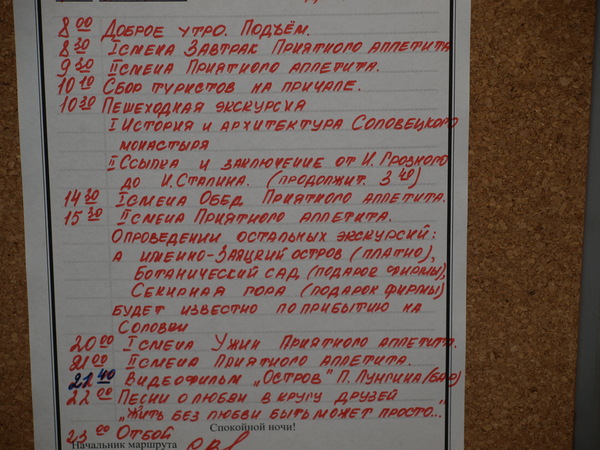 8 00 Доброе утро. Подъём.
8 30 I смена Завтрак Приятного аппетита
9 30 II смена Приятного аппетита.
10 10 Сбор туристов на причале.
10 20 Пешеходная экскурсия
I История и архитектура Соловецкого
монастыря
II Ссылка и заключение от И. Грозного
до И. Сталина. (продолжит. 3 40)
14 30 I смена Обед Приятного аппетита.
15 30 II смена Приятного аппетита.
О проведении остальных экскурсий:
а именно - Заяцкий остров (платно),
Ботанический сад (подарок фирмы),
Секирная гора (подарок фирмы)
будет известно по прибытию на
Соловки
20 00 I смена Ужин Приятного аппетита.
21 00 II смена Приятного аппетита.
21 40 Видеофильм „Остров" П. Лунгина (бар)
22 00 Песни о любви в кругу друзей
„Жить без любви быть может просто..."
23 00 Отбой
Спокойной ночи!
Начальник маршрута